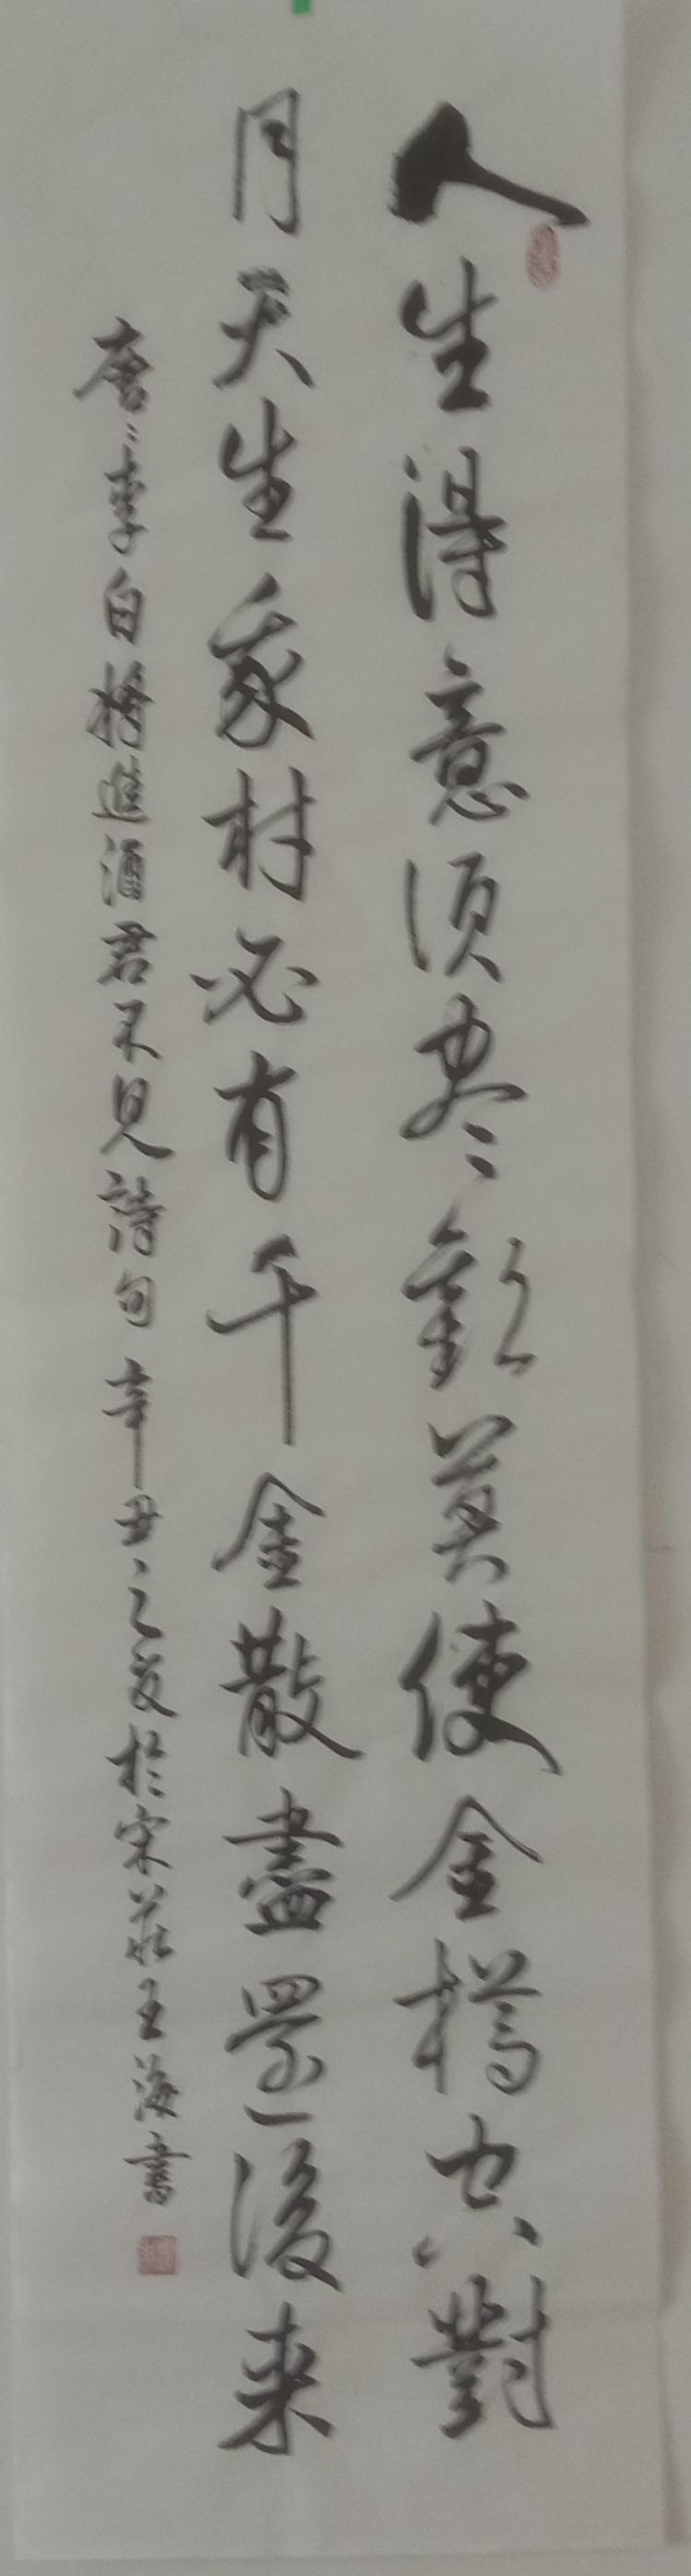 人生得意须尽歡莫使金樽空對
月天生我材必有千金散盡還後来
唐李白将進酒君不見詩句 辛丑之夏於宋莊王海書